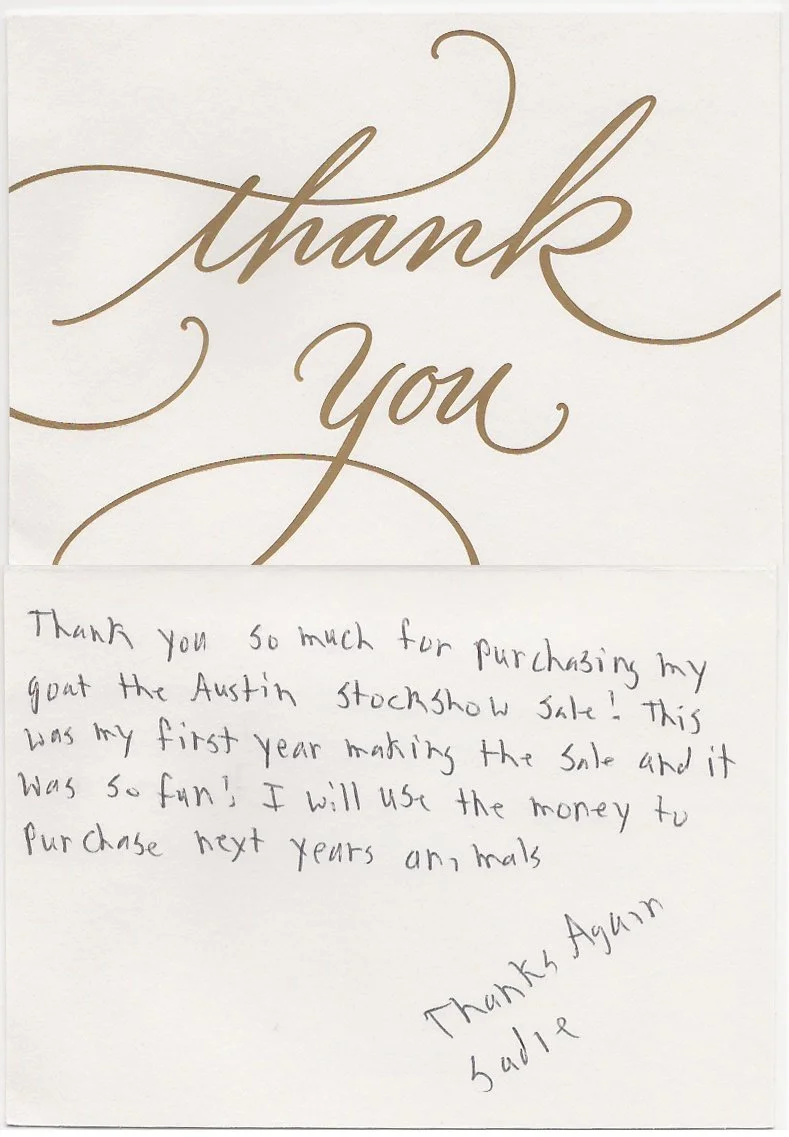 thank
you
Thank you so much for purchasing my
goat the Austin stockshow sale! This
was my first year making the sale and it
was so fun! I will use the money to
purchase next years animals
Thanks Again
Sadie